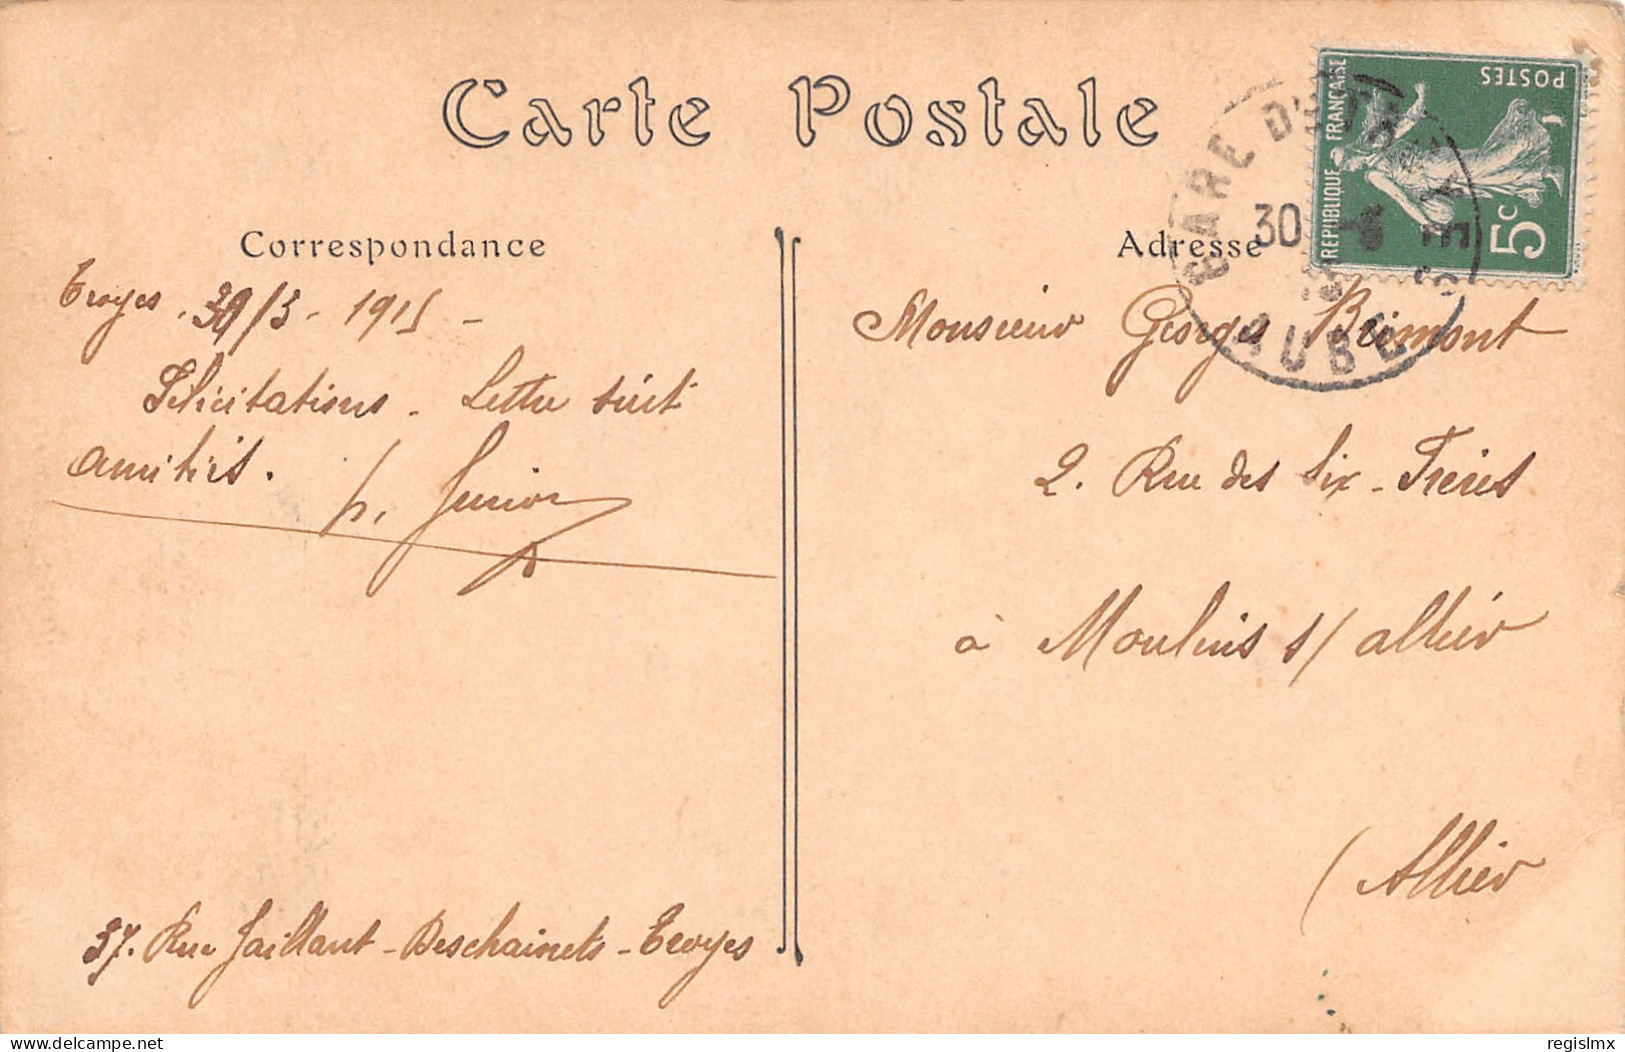 Carte Postale
RÉPUBLIQUE FRANÇAISE
POSTES
5c
30
AUBE
Correspondance
Troyes . 30/3 - 1915 -
Félicitations - Lettre suit
amitiés.
p. Junior
37. Rue Jaillant - Deschainets - Troyes
Adresse
Monsieur Georges Brimont
2. Rue des Six - Frères
à Moulins s/ allier
(Allier
delcampe.net
regislmx